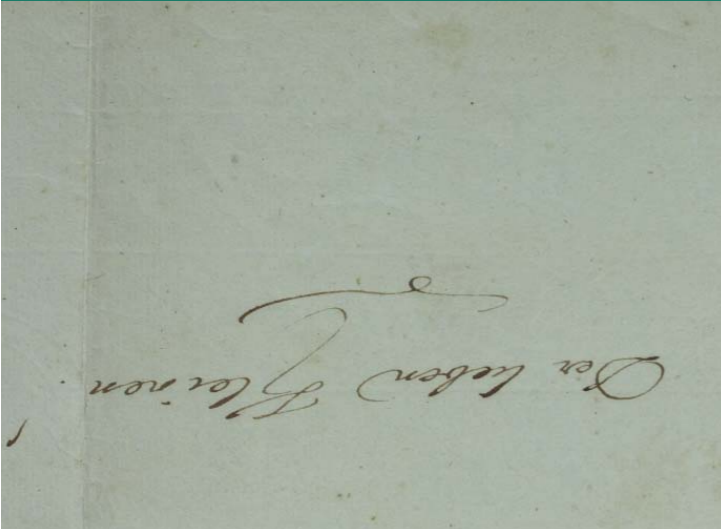 Der lieben Kleinen.